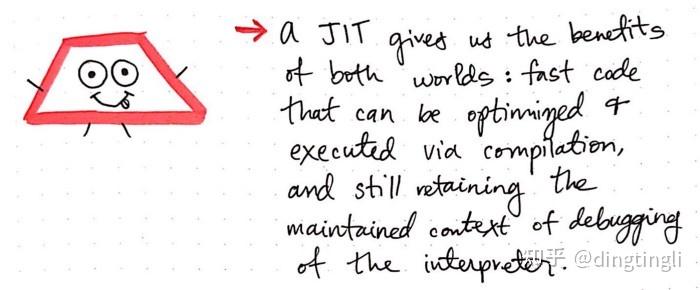 → a JIT gives us the benefits
of both worlds : fast code
that can be optimized &
executed via compilation,
and still retaining the
maintained context of debugging
of the interpreter.
知乎 @dingtingli